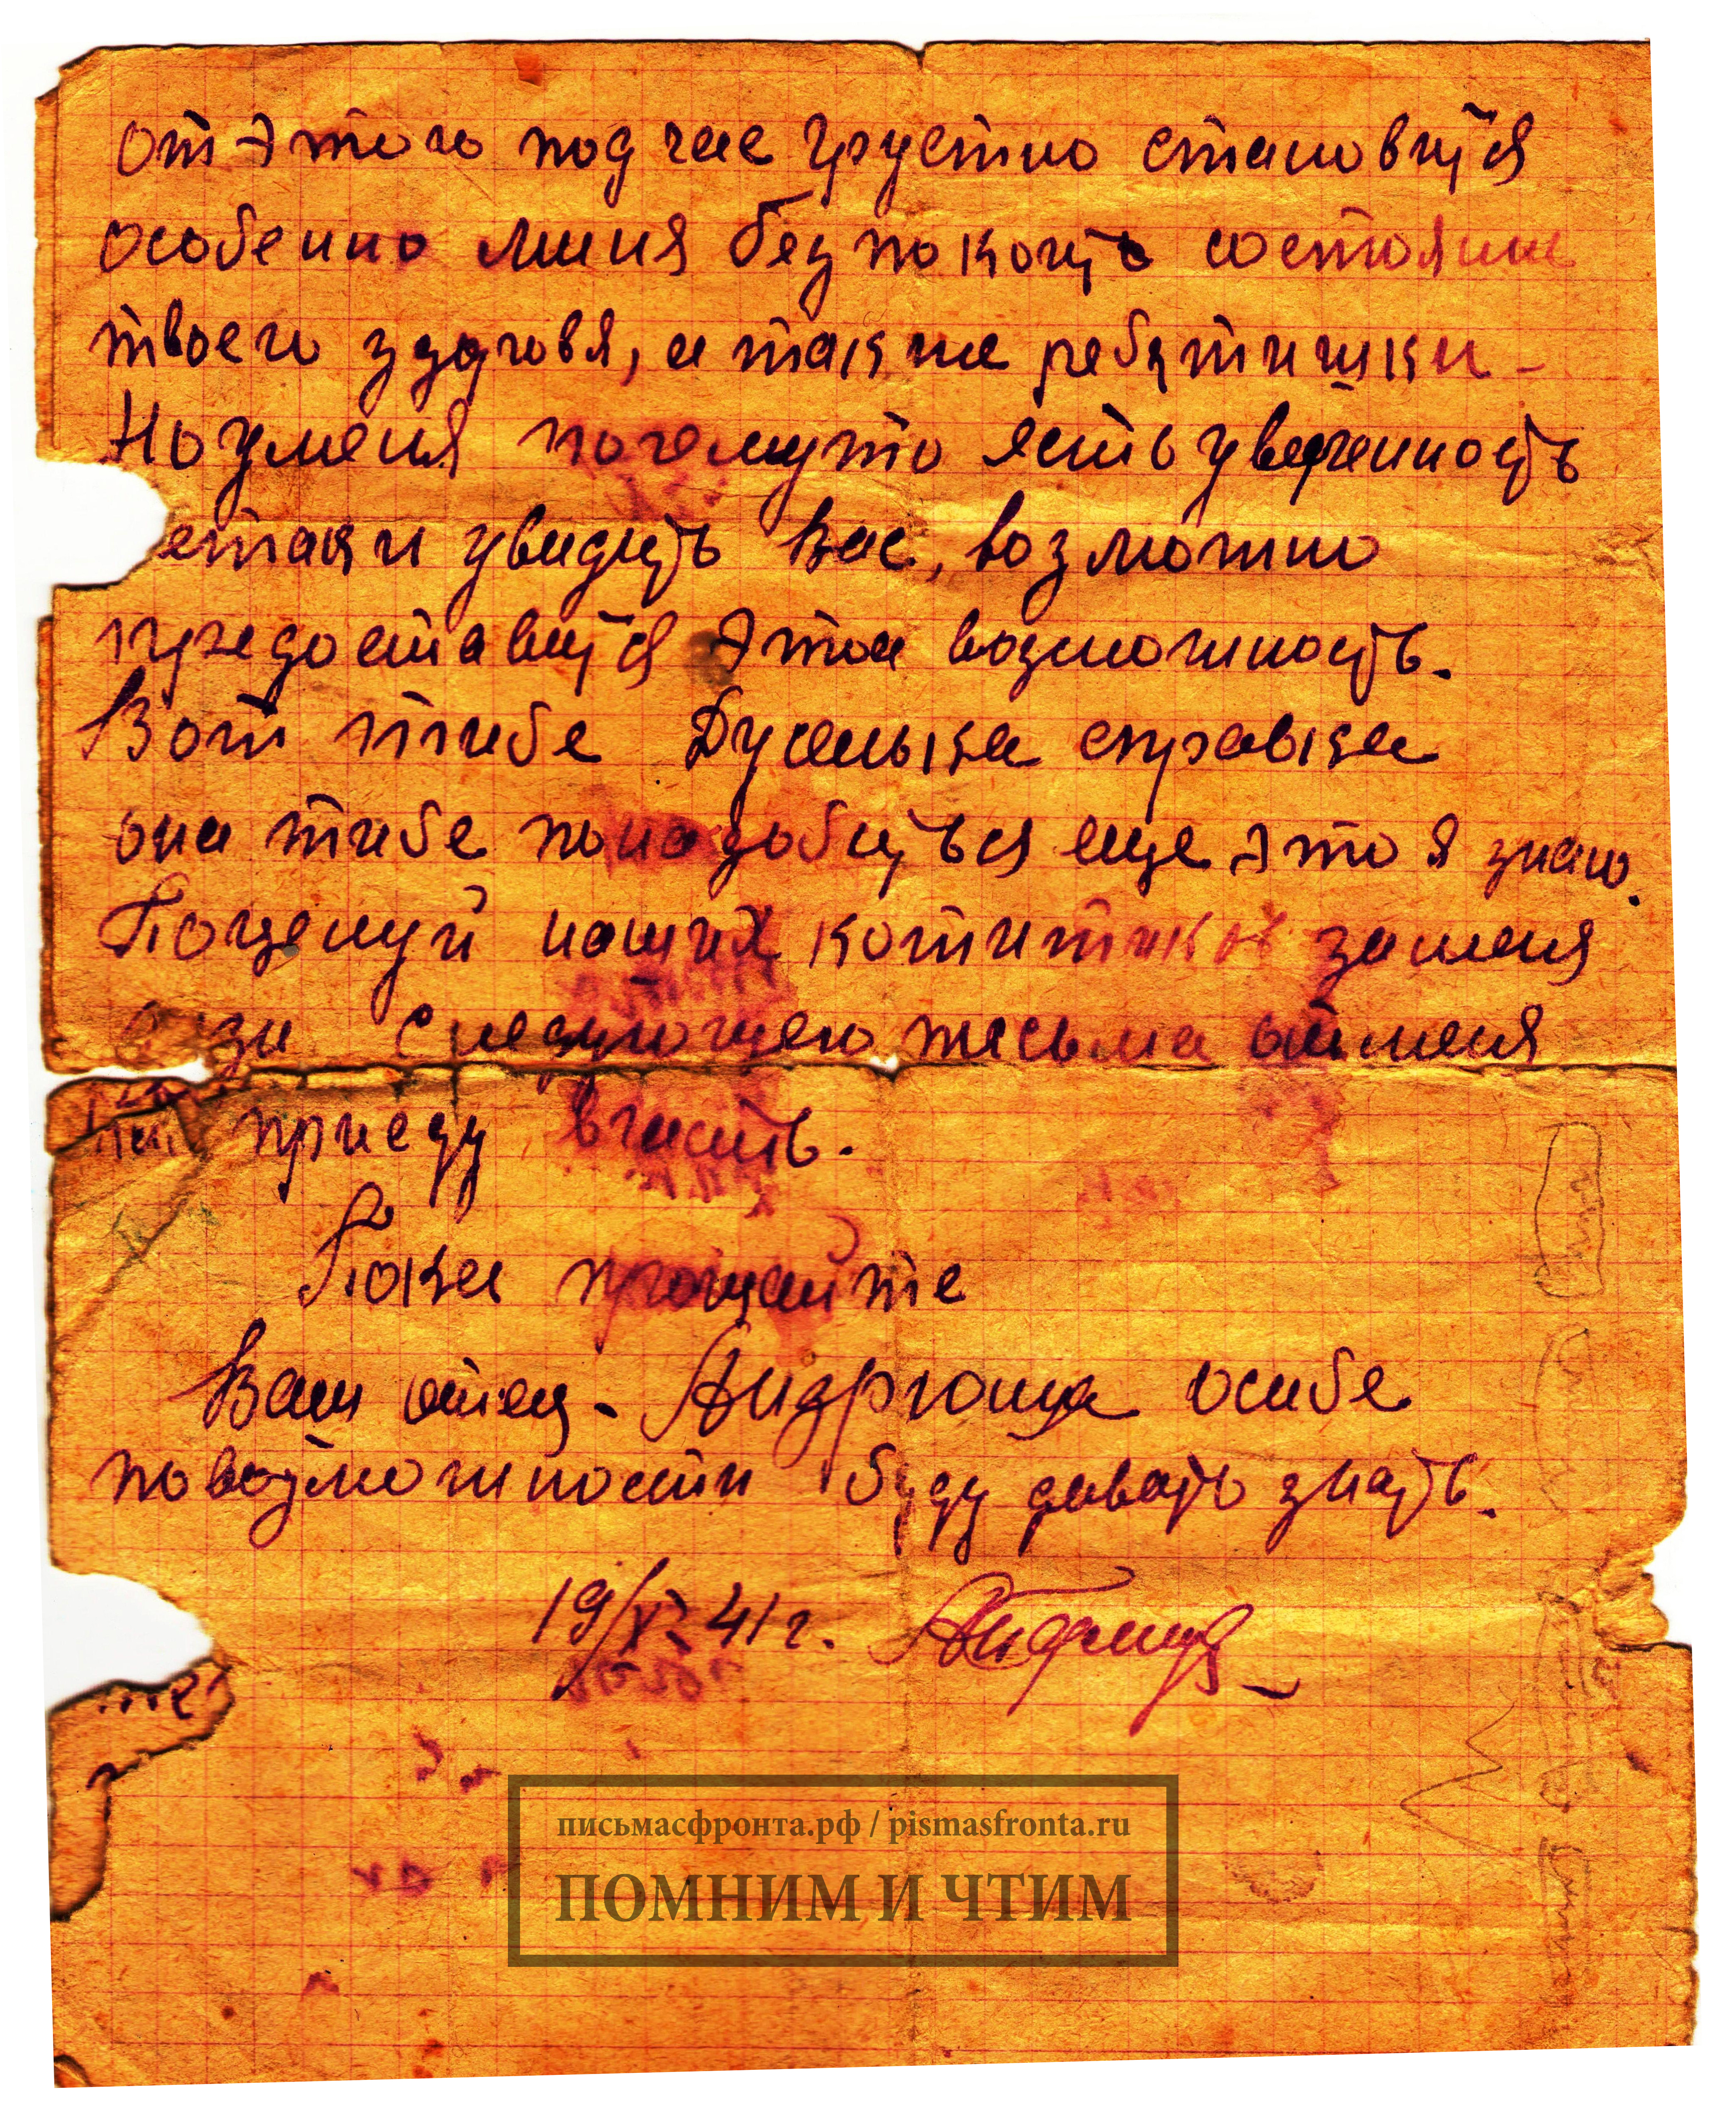 от этого подчас грустно становится
особенно миня безпокоить состояние
твоего здоровя, а также ребятишки -
Но уменя почемуто есть уверенность
етаки увидить Вас, возможно
предоставится этаа возможность.
Вот тибе Дусенька справка
она тибе понадобиться еще это я знаю.
Поцелуй наших котитиков заменя
следующего письма отменя
приеду вчасть.
Пока прощайте
Ваш отец - Андрюша осибе
повозможности буду давать знать.
19/XI-41г.
письмасфронта.рф / pismasfronta.ru
ПОМНИМ И ЧТИМ